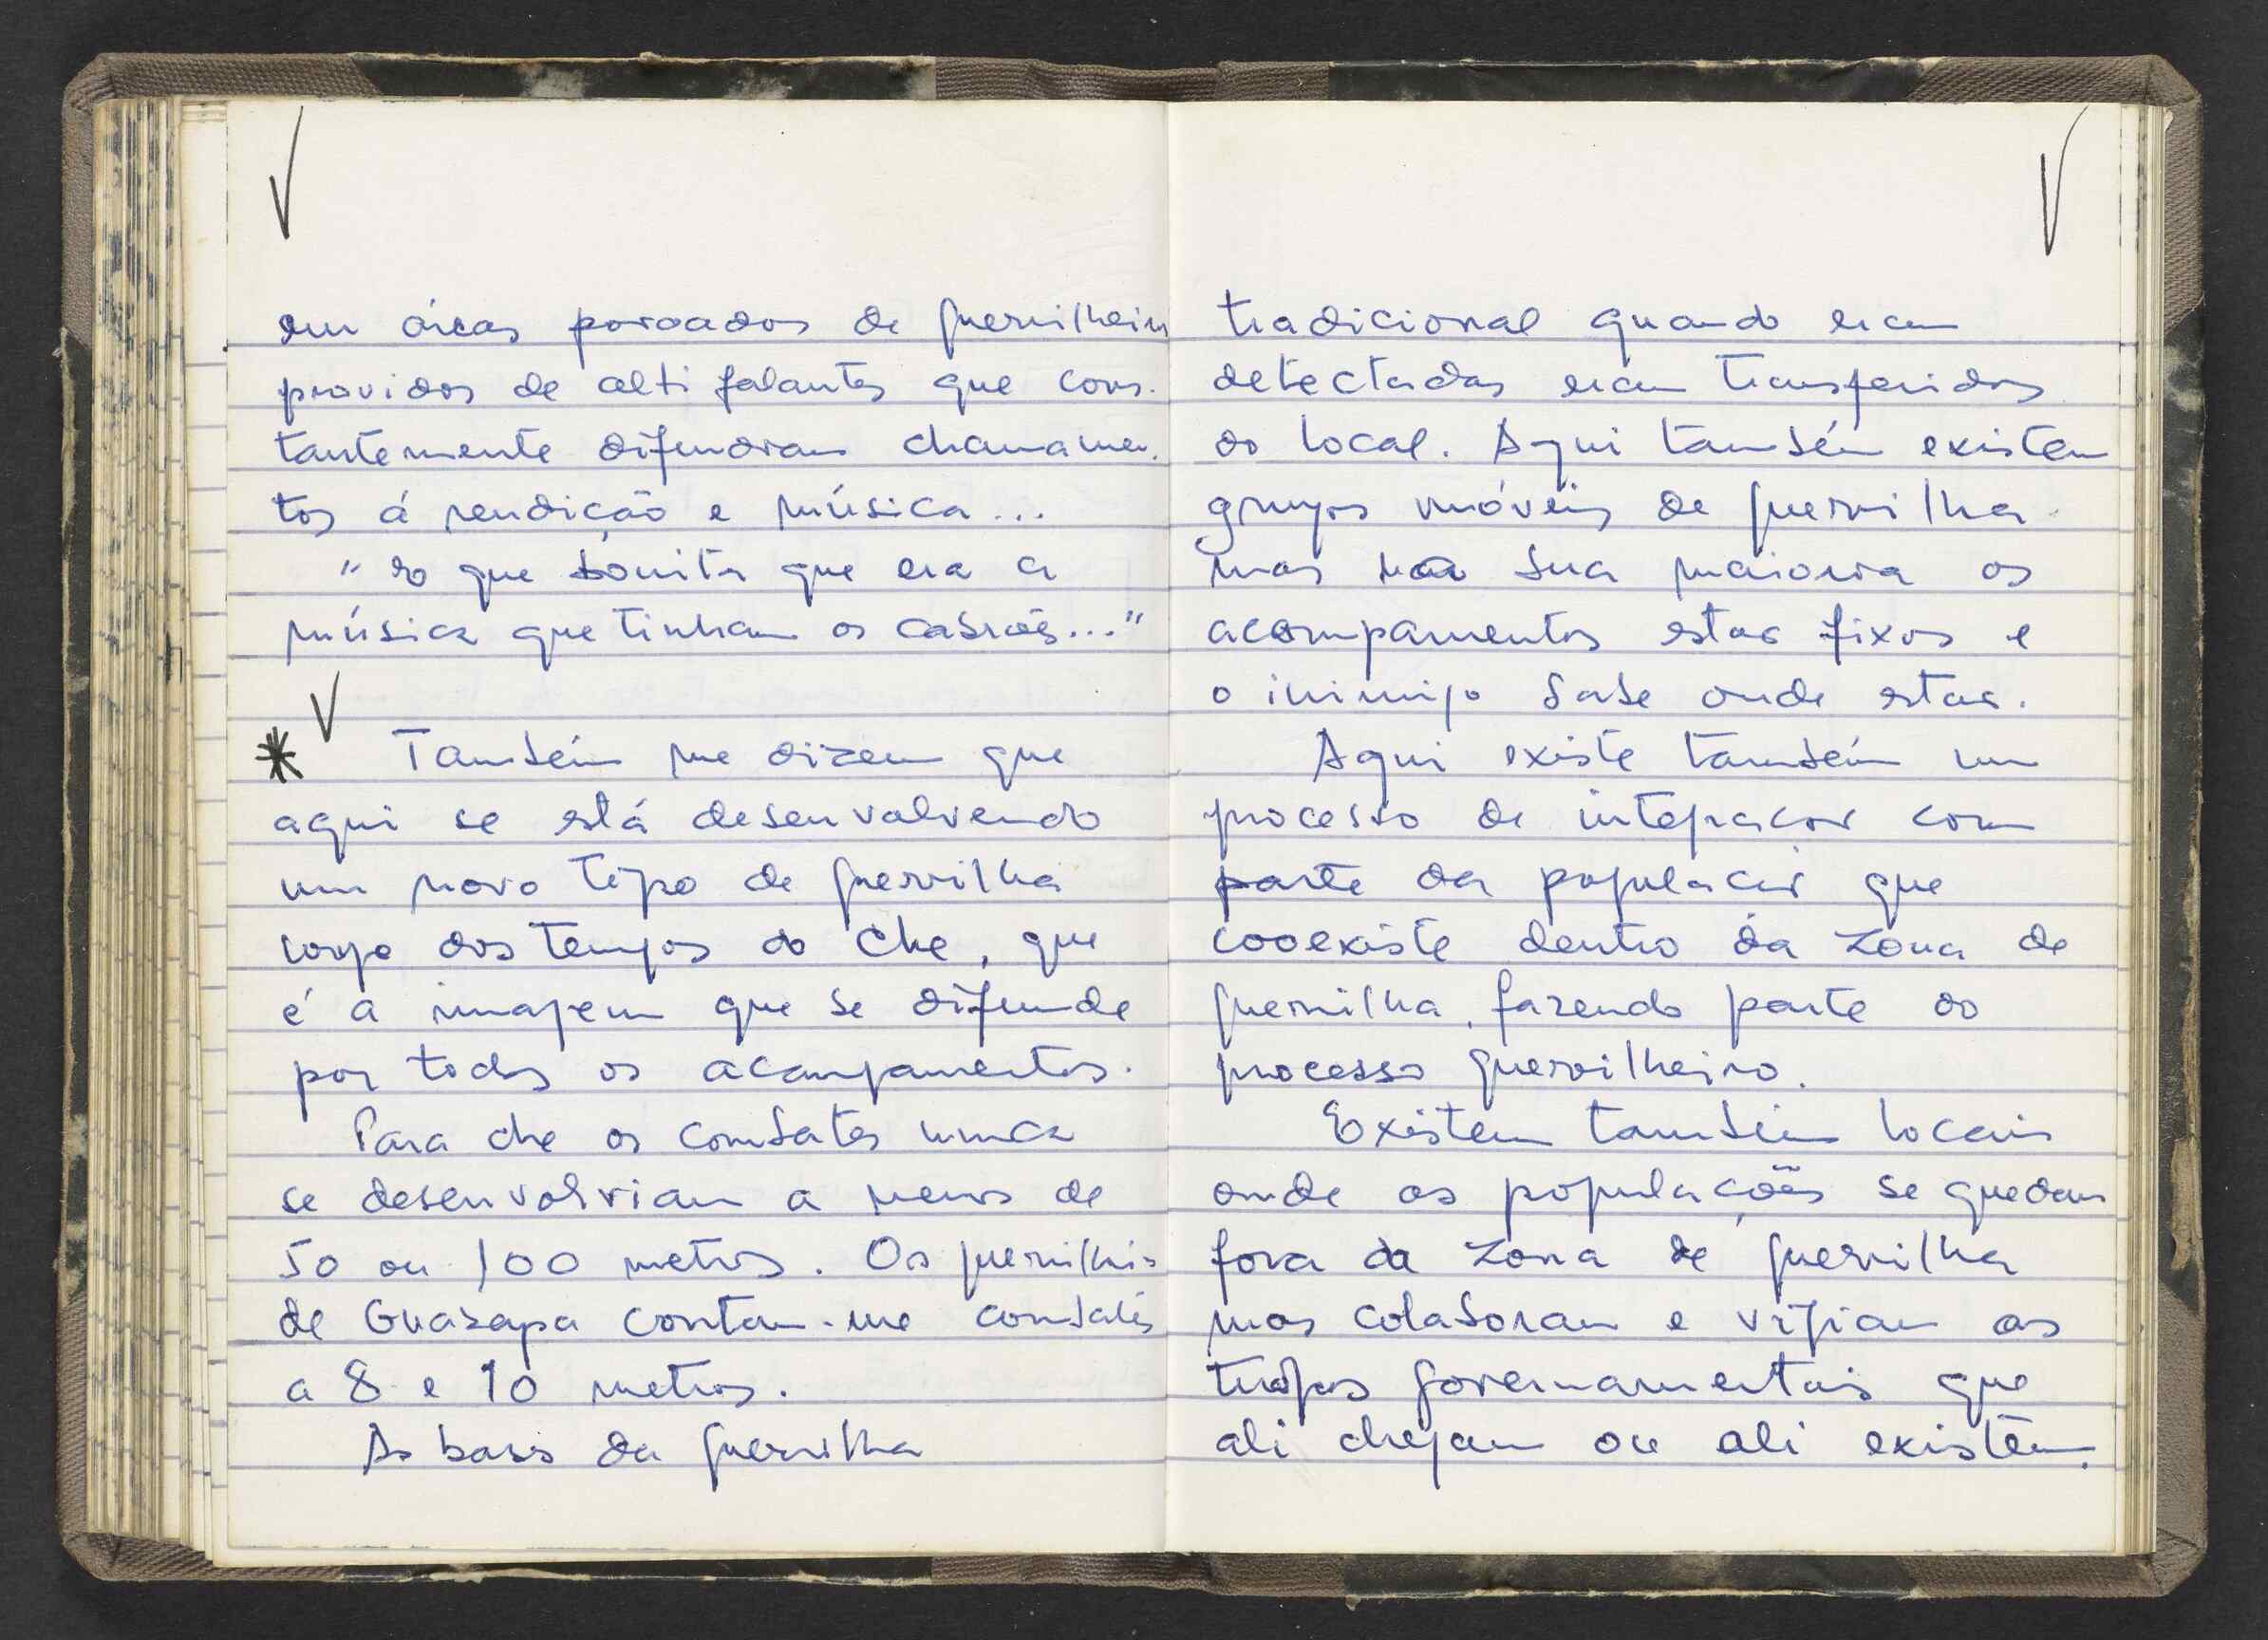 em áreas povoados de guerrilheiros
providos de altifalantes que cons-
tantemente difundiam chamamen-
tos á rendição e música...
" Lo que bonita que era a
música que tinham os cabrões..."
* Também me dizem que
aqui se está desenvolvendo
um novo tipo de guerrilha
longe dos tempos do Che, que
é a imagem que se difunde
por todos os acampamentos.
Para che os combates nunca
se desenvolviam a menos de
50 ou 100 metros. Os guerrilhs
de Guazapa contam-me combates
a 8 e 10 metros.
As bases da guerrilha
tradicional quando eram
detectadas eram transferidos
do local. Aqui também existem
grupos móveis de guerrilha
mas na sua maioria os
acompamentos estao fixos e
o inimigo sabe onde estao.
Aqui existe também um
processo de integracao com
parte da populacao que
cooexiste dentro da zona de
guerrilha, fazendo parte do
processo guerrilheiro.
Existem também locais
onde as populações se quedam
fora da zona de guerrilha
mas colaboram e vigiam as
tropas governamentais que
ali chegam ou ali existem.